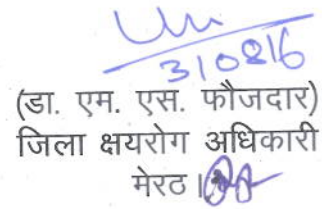 310816
(डा. एम. एस. फौजदार)
जिला क्षयरोग अधिकारी
मेरठ।